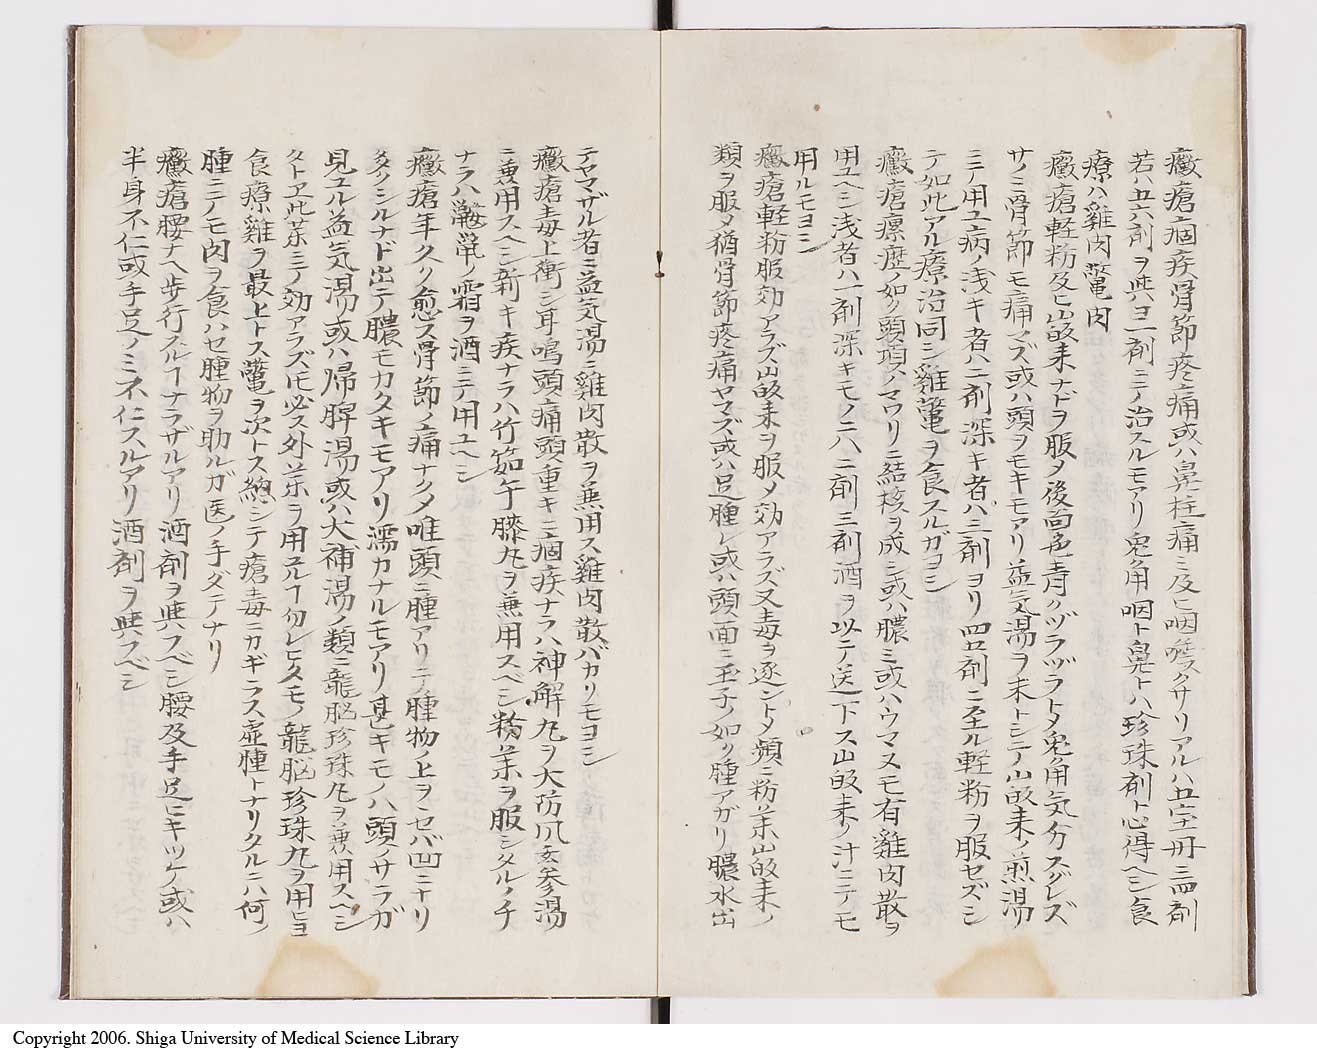 癥瘡痼疾骨節疼痛或ハ鼻柱痛ミ及ヒ咽喉スクサリアルハ五宝丹三四剤
若ハ五六剤ヲ與ヨ一剤ニテ治スルモアリ兎角咽ト鼻トハ珍珠剤ト心得ヘシ食
療ハ雞肉鼈肉
癥瘡軽粉及ヒ山皈来ナドヲ服メ後面色青クヅラヅラトメ兎角気分スグレズ
サノミ骨節モ痛マズ或ハ頭ヲモキモアリ益気湯ヲ末トシテ山皈来ノ煎湯
ニテ用ユ病ノ浅キ者ハ二剤深キ者ハ三剤ヨリ四五剤ニ至ル軽粉ヲ服セズシ
テ如此アル療治同シ雞鼈ヲ食スルガヨシ
癥瘡瘰癧ノ如ク頸項ノマワリニ結核ヲ成シ或ハ膿ミ或ハウマヌモ有雞肉散ヲ
用ユヘシ浅者ハ一剤深キモノニハ二剤三剤酒ヲ以テ送下ス山皈来ノ汁ニテモ
用ルモヨシ
癥瘡軽粉服効アラズ山皈来ヲ服メ効アラズ又毒ヲ逐ントメ頻ニ粉茶山皈来ノ
類ヲ服メ猶骨節疼痛ヤマズ或ハ足腫レ或ハ頭面ニ玉子ノ如ク腫アガリ膿水出
テヤマザル者ニ益気湯ニ雞肉散ヲ兼用ス雞肉散バカリモヨシ
癥瘡毒上衝シ耳鳴頭痛頭重キニ痼疾ナラハ神解丸ヲ大防風玄参湯
ニ兼用スヘシ新キ疾ナラハ竹茹午膝丸ヲ兼用スベシ粉茶ヲ服シタルノチ
ナラハ ノ霜ヲ酒ニテ用ユヘシ
癥瘡年久ク愈ス骨節ノ痛ナクメ唯頭ニ腫アリテ腫物上ヲヲセバ凹ニナリ
多クシルナド出テ膿モカタキモアリ濡カナルモアリ甚キモノハ頭ノサラガ
見ユル益気湯或ハ帰脾湯或ハ大補湯ノ類ニ龍脳珍珠丸ヲ兼用スヘシ
タトヱ此茶ニテ効アラズ𪜈必ス外茶ヲ用ユルヿ勿レヒタモノ龍脳珍珠丸ヲ用ヒヨ
食療雞ヲ最上トス鼈ヲ次トス總シテ瘡毒ニカギラス虚腫トナリタルニハ何ノ
腫ニテモ肉ヲ食ハセ腫物ヲ助ルガ医ノ手ダテナリ
癥瘡腰ナヘ歩行スルヿナラザルアリ酒剤ヲ與フベシ腰及手足ヒキツケ或ハ
半身不仁或手足ノミ不仁スルアリ酒剤ヲ與スベシ
Copyright 2006. Shiga University of Medical Science Library